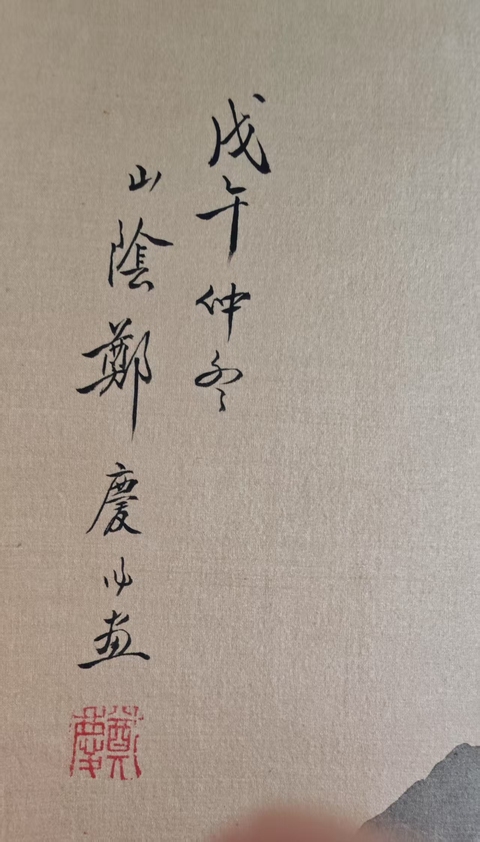 戊午仲冬
山陰鄭慶畫
鄭慶